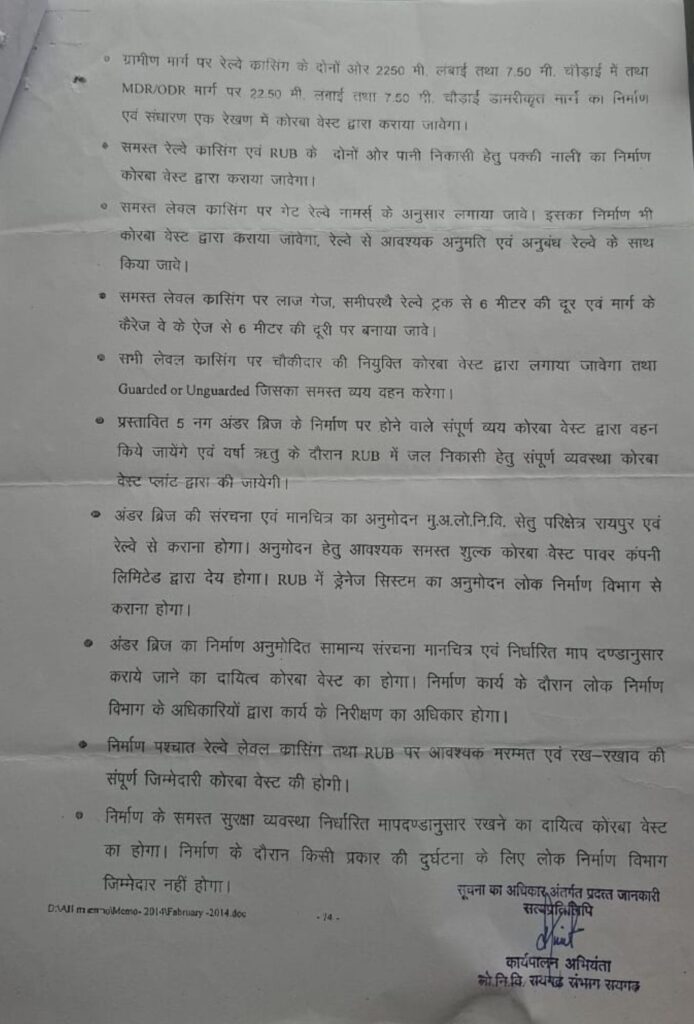 ग्रामीण मार्ग पर रेल्वे कासिंग के दोनों ओर 2250 मी. लंबाई तथा 7.50 मी. चौड़ाई में तथा
MDR/ODR मार्ग पर 22.50 मी. लंबाई तथा 7.50 मी. चौड़ाई डामरीकृत मार्ग का निर्माण
एवं संधारण एक रेखण में कोरबा वेस्ट द्वारा कराया जावेगा।
समस्त रेल्वे कासिंग एवं RUB के दोनों ओर पानी निकासी हेतु पक्की नाली का निर्माण
कोरबा वेस्ट द्वारा कराया जावेगा।
समस्त लेवल कासिंग पर गेट रेल्वे नामर्स् के अनुसार लगाया जावे। इसका निर्माण भी
कोरबा वेस्ट द्वारा कराया जावेगा, रेल्वे से आवश्यक अनुमति एवं अनुबंध रेल्वे के साथ
किया जावे।
समस्त लेवल कासिंग पर लाज गेज, समीपस्थै रेल्वे ट्रक से 6 मीटर की दूर एवं मार्ग के
कैरेज वे के ऐज से 6 मीटर की दूरी पर बनाया जावे।
सभी लेवल कासिंग पर चौकीदार की नियुक्ति कोरबा वेस्ट द्वारा लगाया जावेगा तथा
Guarded or Unguarded जिसका समस्त व्यय वहन करेगा।
प्रस्तावित 5 नग अंडर ब्रिज के निर्माण पर होने वाले संपूर्ण व्यय कोरबा वेस्ट द्वारा वहन
किये जायेंगे एवं वर्षा ऋतु के दौरान RUB में जल निकासी हेतु संपूर्ण व्यवस्था कोरबा
वेस्ट प्लांट द्वारा की जायेगी।
अंडर ब्रिज की संरचना एवं मानचित्र का अनुमोदन मु.अ.लो.नि.वि. सेतु परिक्षेत्र रायपुर एवं
रेल्वे से कराना होगा। अनुमोदन हेतु आवश्यक समस्त शुल्क कोरबा वेस्ट पावर कंपनी
लिमिटेड द्वारा देय होगा। RUB में ड्रेनेज सिस्टम का अनुमोदन लोक निर्माण विभाग से
कराना होगा।
अंडर ब्रिज का निर्माण अनुमोदित सामान्य संरचना मानचित्र एवं निर्धारित माप दण्डानुसार
कराये जाने का दायित्व कोरबा वेस्ट का होगा। निर्माण कार्य के दौरान लोक निर्माण
विभाग के अधिकारियों द्वारा कार्य के निरीक्षण का अधिकार होगा।
निर्माण पश्चात रेल्वे लेवल कासिंग तथा RUB पर आवश्यक मरम्मत एवं रख–रखाव की
संपूर्ण जिम्मेदारी कोरबा वेस्ट की होगी।
निर्माण के समस्त सुरक्षा व्यवस्था निर्धारित मापदण्डानुसार रखने का दायित्व कोरबा वेस्ट
का होगा। निर्माण के दौरान किसी प्रकार की दुर्घटना के लिए लोक निर्माण विभाग
जिम्मेदार नहीं होगा।
सूचना का अधिकार अंतर्गत प्रदत्त जानकारी
सत्यप्रतिलिपि
D:\All memo\Memo- 2014\Fabruary -2014.doc
- 14 -
कार्यपालन अभियंता
लो.नि.वि. रायगढ़ संभाग रायगढ़